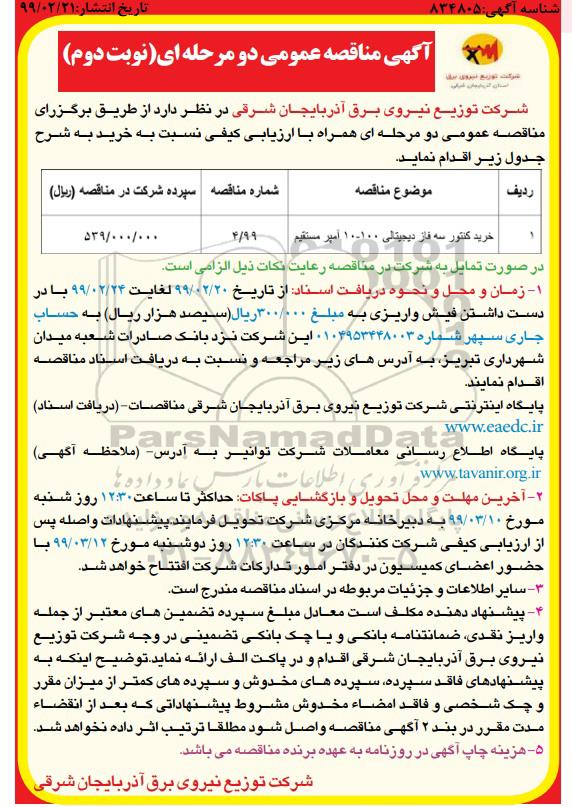 شناسه آگهی: ۸۳۴۸۰۵
تاریخ انتشار: ۹۹/۰۲/۲۱
آگهی مناقصه عمومی دو مرحله ای(نوبت دوم)
شرکت توزیع نیروی برق
استان آذربایجان شرقی
شرکت توزیع نیروی برق آذربایجان شرقی در نظر دارد از طریق برگزاری
مناقصه عمومی دو مرحله ای همراه با ارزیابی کیفی نسبت به خرید به شرح
جدول زیر اقدام نماید.
ردیف موضوع مناقصه شماره مناقصه سپرده شرکت در مناقصه (ریال)
۱ خرید کنتور سه فاز دیجیتالی ۱۰۰-۱۰ آمپر مستقیم ۴/۹۹ ۵۳۹/۰۰۰/۰۰۰
در صورت تمایل به شرکت در مناقصه رعایت نکات ذیل الزامی است.
۱- زمان و محل و نحوه دریافت اسناد: از تاریخ ۹۹/۰۲/۲۰ لغایت ۹۹/۰۲/۲۴ با در
دست داشتن فیش واریزی به مبلغ ۳۰۰/۰۰۰ریال(سیصد هزار ریال) به حساب
جاری سپهر شماره ۰۱۰۴۹۵۳۴۴۸۰۰۳ این شرکت نزد بانک صادرات شعبه میدان
شهرداری تبریز، به آدرس های زیر مراجعه و نسبت به دریافت اسناد مناقصه
اقدام نمایند.
پایگاه اینترنتی شرکت توزیع نیروی برق آذربایجان شرقی مناقصات-(دریافت اسناد)
www.eaedc.ir
پایگاه اطلاع رسانی معاملات شرکت توانیر به آدرس- (ملاحظه آگهی)
www.tavanir.org.ir
۲- آخرین مهلت و محل تحویل و بازگشایی پاکات: حداکثر تا ساعت۱۲:۳۰ روز شنبه
مورخ ۹۹/۰۳/۱۰ به دبیرخانه مرکزی شرکت تحویل فرمایند.پیشنهادات واصله پس
از ارزیابی کیفی شرکت کنندگان در ساعت ۱۲:۳۰ روز دوشنبه مورخ ۹۹/۰۳/۱۲ با
حضور اعضای کمیسیون در دفتر امور تدارکات شرکت افتتاح خواهد شد.
۳- سایر اطلاعات و جزئیات مربوطه در اسناد مناقصه مندرج است.
۴- پیشنهاد دهنده مکلف است معادل مبلغ سپرده تضمین های معتبر از جمله
واریز نقدی، ضمانتنامه بانکی و یا چک بانکی تضمینی در وجه شرکت توزیع
نیروی برق آذربایجان شرقی اقدام و در پاکت الف ارائه نماید.توضیح اینکه به
پیشنهادهای فاقد سپرده، سپرده های مخدوش و سپرده های کمتر از میزان مقرر
و چک شخصی و فاقد امضاء مخدوش مشروط پیشنهاداتی که بعد از انقضاء
مدت مقرر در بند ۲ آگهی مناقصه واصل شود مطلقا ترتیب اثر داده نخواهد شد.
۵- هزینه چاپ آگهی در روزنامه به عهده برنده مناقصه می باشد.
شرکت توزیع نیروی برق آذربایجان شرقی
ParsNamadData